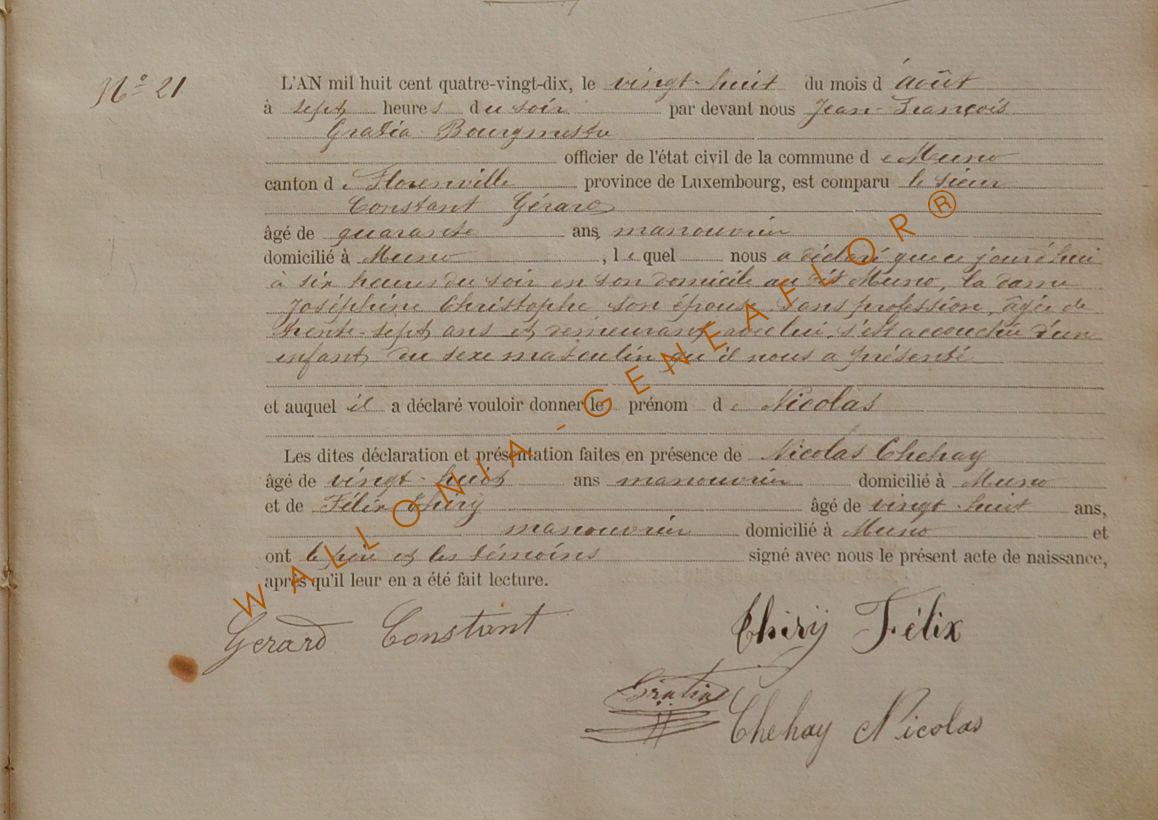 N° 21
L'AN mil huit cent quatre-vingt-dix, le vingt-huit du mois d'août
à sept heures du soir par devant nous Jean-François
Gratia Bourgmestre
officier de l'état civil de la commune de Muno
canton de Florenville province de Luxembourg, est comparu le sieur
Constant Gérard
âgé de quarante ans, manouvrier
domicilié à Muno, lequel nous a déclaré que ce jourd'hui
à six heures du soir en son domicile au dit Muno, la dame
Joséphine Christophe son épouse sans profession, âgée de
trente-sept ans et demeurant avec lui, s'est accouchée d'un
enfant du sexe masculin qu'il nous a présenté
et auquel il a déclaré vouloir donner le prénom de Nicolas
Les dites déclaration et présentation faites en présence de Nicolas Chehay
âgé de vingt-huit ans manouvrier domicilié à Muno
et de Félix Thiry âgé de vingt-huit ans,
manouvrier domicilié à Muno et
ont le père et les témoins signé avec nous le présent acte de naissance,
après qu'il leur en a été fait lecture.
Gerard Constant Thirÿ Félix
Gratia
Chehay Nicolas
WALLONIA-GENEAFLOR®